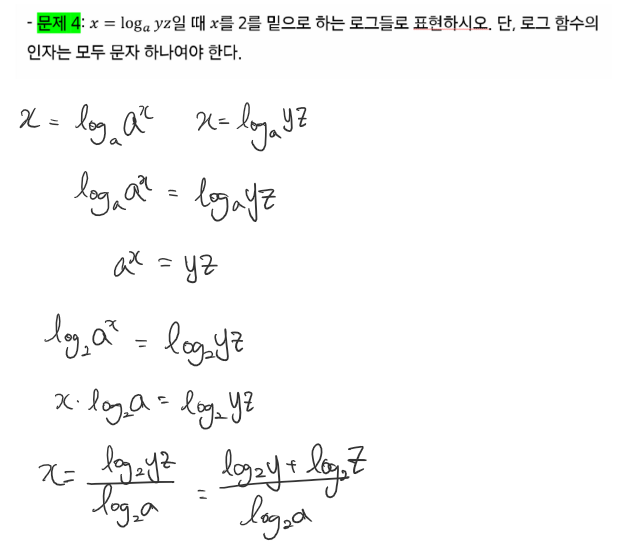 - 문제 4: x = logₐ yz일 때 x를 2를 밑으로 하는 로그들로 표현하시오. 단, 로그 함수의
인자는 모두 문자 하나여야 한다.
x = logₐ aˣ   x = logₐ yz
logₐ aˣ = logₐ yz
aˣ = yz
log₂ aˣ = log₂ yz
x · log₂ a = log₂ yz
x = (log₂ yz)/(log₂ a) = (log₂ y + log₂ z)/(log₂ a)